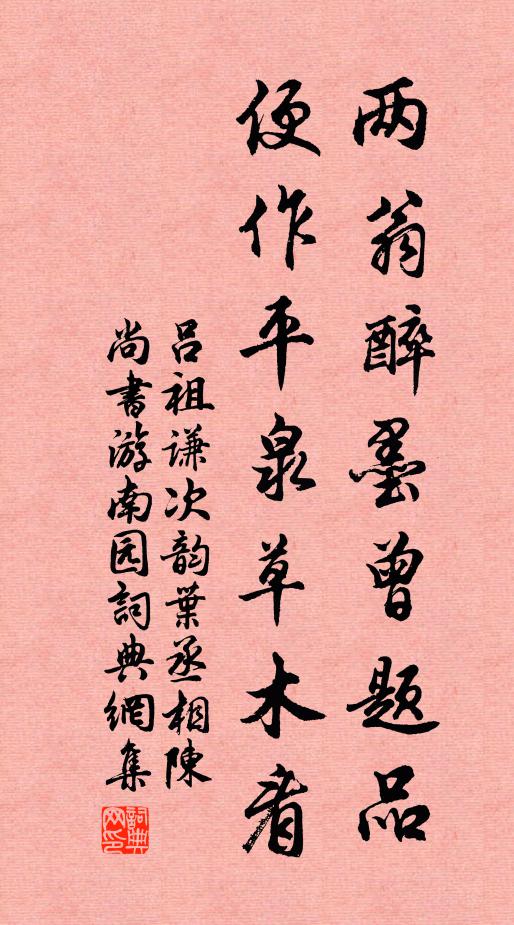 两翁醉墨曾题品
便作平泉草木看
吕祖谦次韵葉丞相陳
尚書游南园詞典網集
詞典网印